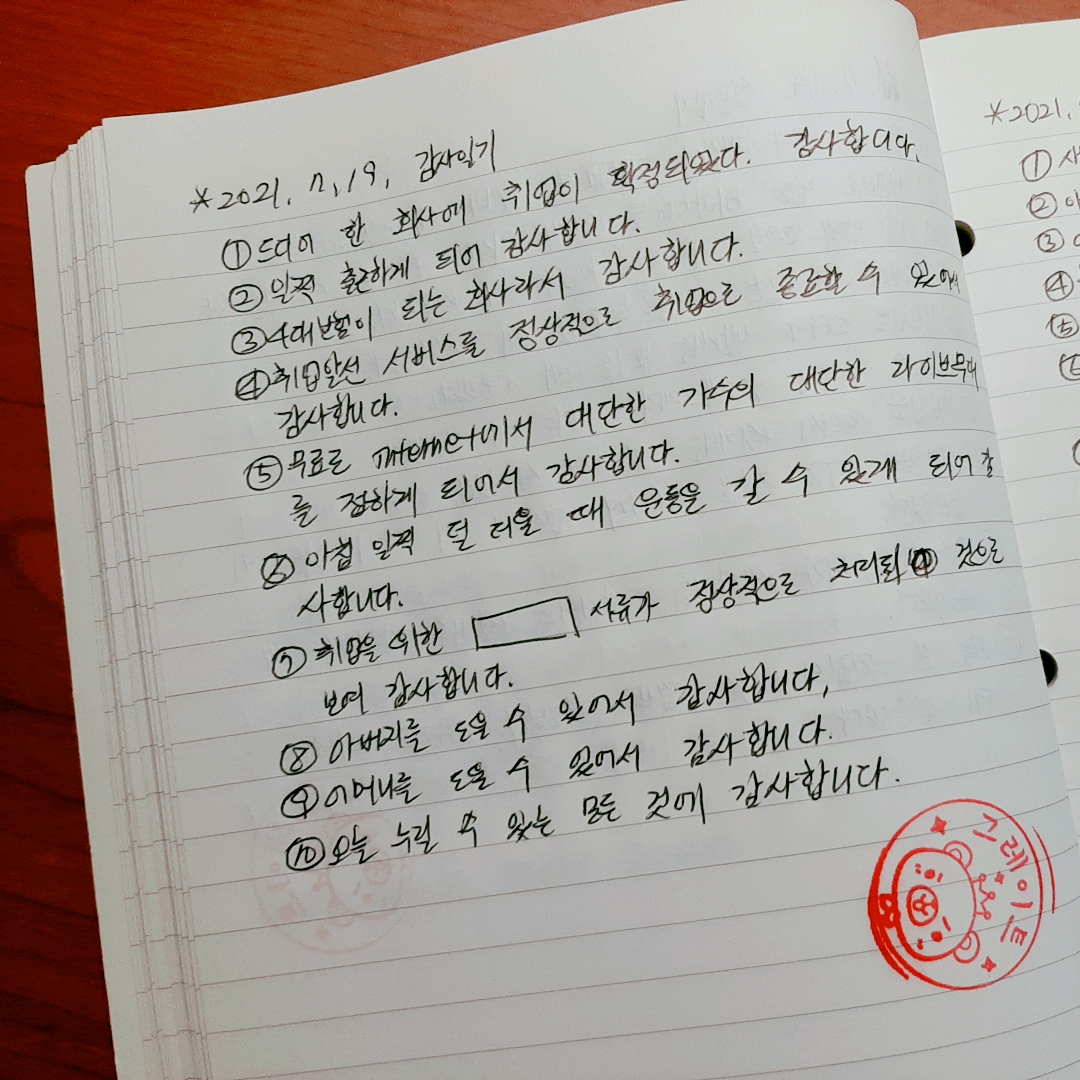 *2021. 7. 19. 감사일기
① 드디어 한 회사에 취업이 확정되었다. 감사합니다.
② 일찍 출근하게 되어 감사합니다.
③ 4대보험이 되는 회사라서 감사합니다.
④ 취업알선 서비스를 정상적으로 취업으로 종료할 수 있어서
감사합니다.
⑤ 무료로 internet에서 대단한 가수의 대단한 라이브무대
를 접하게 되어서 감사합니다.
⑥ 아침 일찍 덜 더울 때 운동을 갈 수 있게 되어 감
사합니다.
⑦ 취업을 위한 서류가 정상적으로 처리된 것으로
보여 감사합니다.
⑧ 아버지를 도울 수 있어서 감사합니다.
⑨ 어머니를 도울 수 있어서 감사합니다.
⑩ 오늘 누릴 수 있는 모든 것에 감사합니다.
그레이트
*2021.
①
②
③
④
⑤